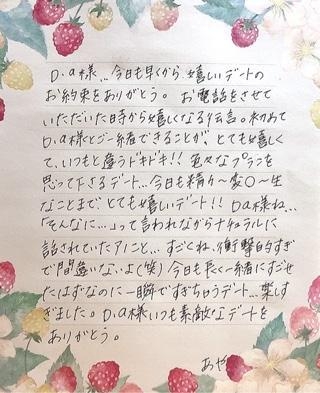 D.a様... 今日も早くから嬉しいデートの
お約束をありがとう。お電話をさせて
いただいた時から嬉しくなる伝言。初めて
D.a様とご一緒できることが、とても嬉しく
て、いつもと違うドキドキ!! 色々なプランを
思って下さるデート...今日も精々〜変○〜生
なことまで とても嬉しいデート!! Da様ね...
「そんなに...」って言われながらナチュラルに
話されていたアノこと... すごくね、衝撃的すぎ
で間違いないよ(笑) 今日も長く一緒にすごせ
たはずなのに一瞬ですぎちゃうデート...楽しす
ぎました。D.a様いつも素敵なデートを
ありがとう。
あや